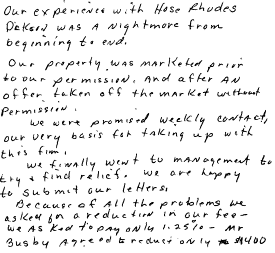 Our experience with Hose Rhodes
Dickson was A nightmare from
beginning to end.
Our property was marketed prior
to our permission. And after AN
offer taken off the market without
Permission.
We were promised weekly contact,
our very basis for taking up with
this firm.
We finally went to management to
try & find relief. We are happy
to submit our letters.
Because of All the problems we
asked for a reduction in our fee -
we asked to pay only 1.25% - Mr
Busby Agreed to reduce only $400